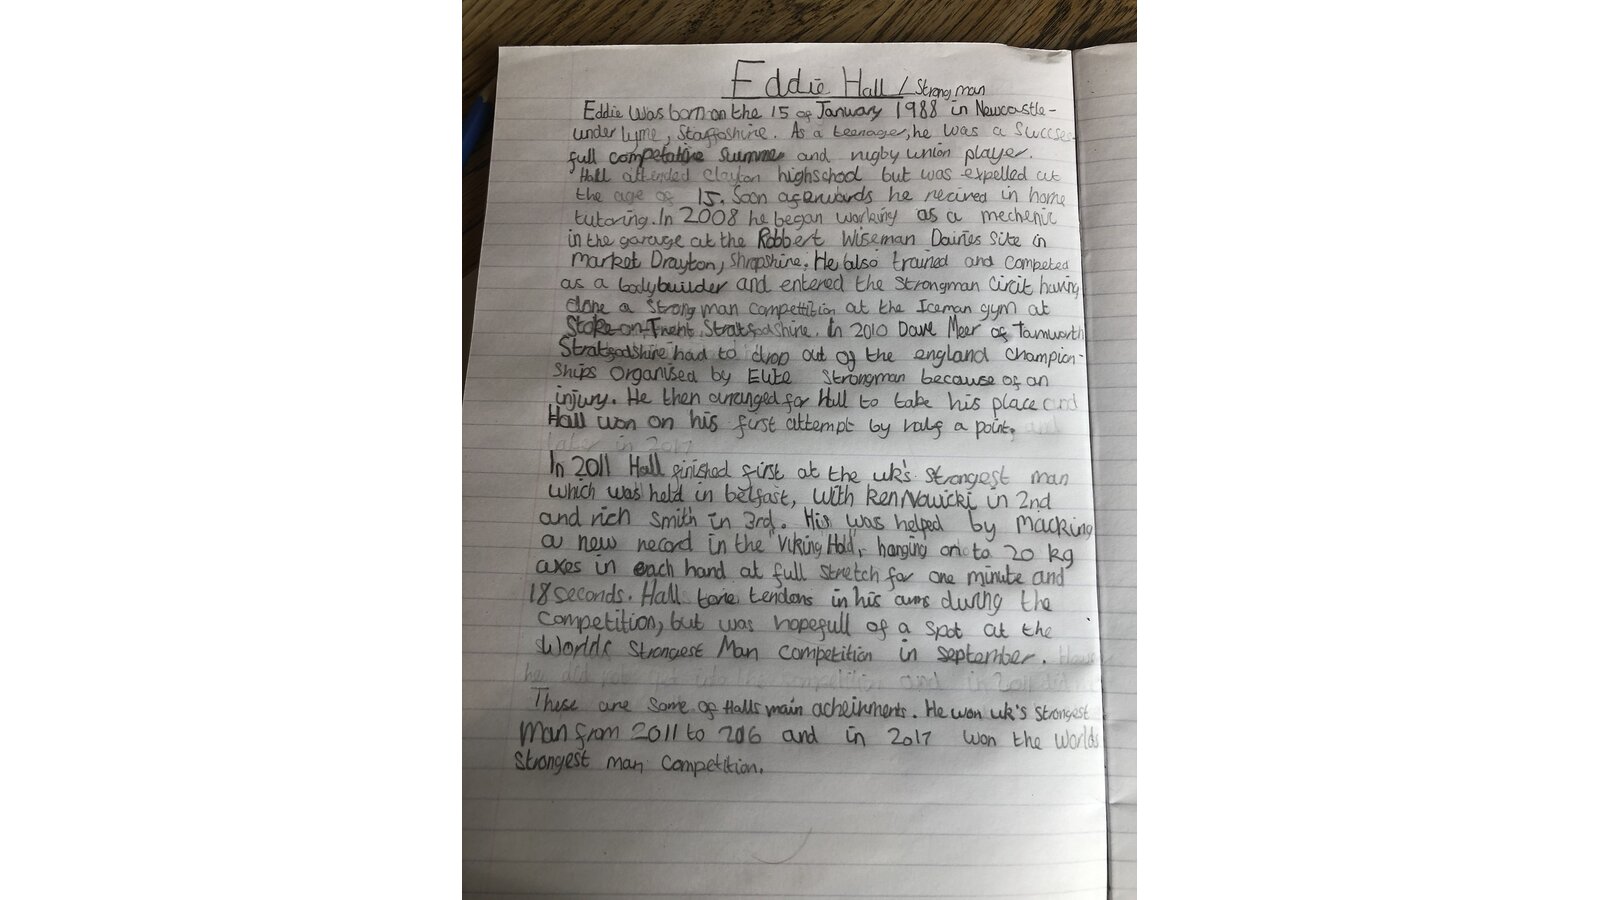 Eddie Hall / Strongman
Eddie was born on the 15 of January 1988 in Newcastle-
under lyme, Staffoshire. As a teenager, he was a Succses-
full competative Summer and rugby union player.
Hall attended Clayton highschool but was expelled at
the age of 15. Soon afterwards he recived in home
tutoring. In 2008 he began working as a mechenic
in the garage at the Robbert Wiseman Dairies Site in
Market Drayton, Shropshire. He also trained and competed
as a bodybuilder and entered the strongman Circit having
done a strong man compettition at the Iceman gym at
Stoke-on-Trent, Stratfodshire. In 2010 Dave Meer of Tamworth
Stratfodshire had to drop out of the england champion-
ships organised by Elite Strongman because of an
injury. He then arranged for Hall to take his place and
Hall won on his first attempt by half a point.
later in 2017
In 2011 Hall finished first at the uk's strongest man
which was held in belfast, with Ken Nowicki in 2nd
and rich Smith in 3rd. His was helped by Macking
a new record in the "Viking Hold", hanging on to 20 kg
axes in each hand at full stretch for one minute and
18 seconds. Hall tore tendons in his arms during the
competition, but was hopefull of a spot at the
Worlds Strongest Man competition in september.
he did not get into the competition and in
These are some of Halls main acheinments. He won uk's strongest
Man from 2011 to 2016 and in 2017 won the worlds
strongest man competition.